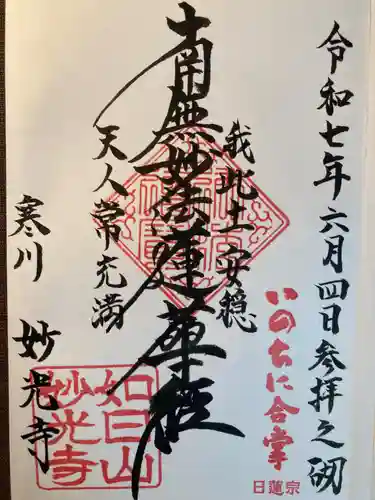 令和七年六月四日参拝之砌
いのちに合掌
日蓮宗
我此土安穏
南無妙法蓮華経
天人常充満
寒川 妙光寺
如日山
妙光寺